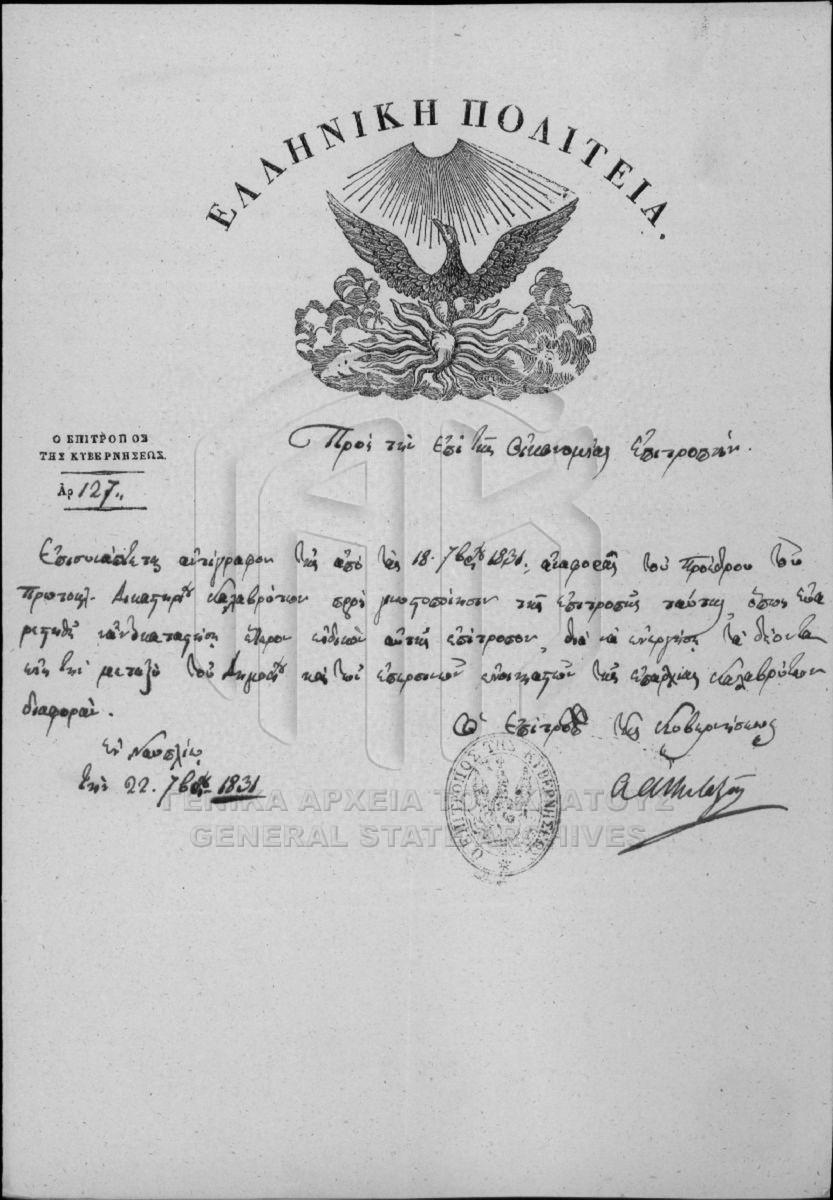 ΕΛΛΗΝΙΚΗ ΠΟΛΙΤΕΙΑ.
Ο ΕΠΙΤΡΟΠΟΣ
ΤΗΣ ΚΥΒΕΡΝΗΣΕΩΣ.
Ἀρ 127,,
Πρὸς τὴν ἐπὶ τῆς Οἰκονομίας Ἐπιτροπήν.
Ἐπισυνάπτεται ἀντίγραφον τῆς ἀπὸ τὰς 18. 7βρίου 1831, ἀναφορᾶς τοῦ Προέδρου τοῦ
Πρωτοκλ. Δικαστηρίου Καλαβρύτων πρὸς τῆς ἐπιτροπῆς ταύτης, ὅπως εὐα
ρεστηθῇ ἕτερον εἰδικὸν αὐτῆς ἐπίτροπον, διὰ νὰ ἐνεργήσῃ τὰ δέοντα
εἰς τὴν μεταξὺ τοῦ Δημοσίου καὶ τοῦ ἐνοικιαστῶν τῆς ἐπαρχίας Καλαβρύτων
διαφοράν.
Ὁ Ἐπίτροπος τῆς Κυβερνήσεως
ἐν Ναυπλίῳ
τὴν 22. 7βρίου 1831
Ο ΕΠΙΤΡΟΠΟΣ ΤΗΣ ΚΥΒΕΡΝΗΣΕΩΣ
ΓΕΝΙΚΑ ΑΡΧΕΙΑ ΤΟΥ ΚΡΑΤΟΥΣ
GENERAL STATE ARCHIVES